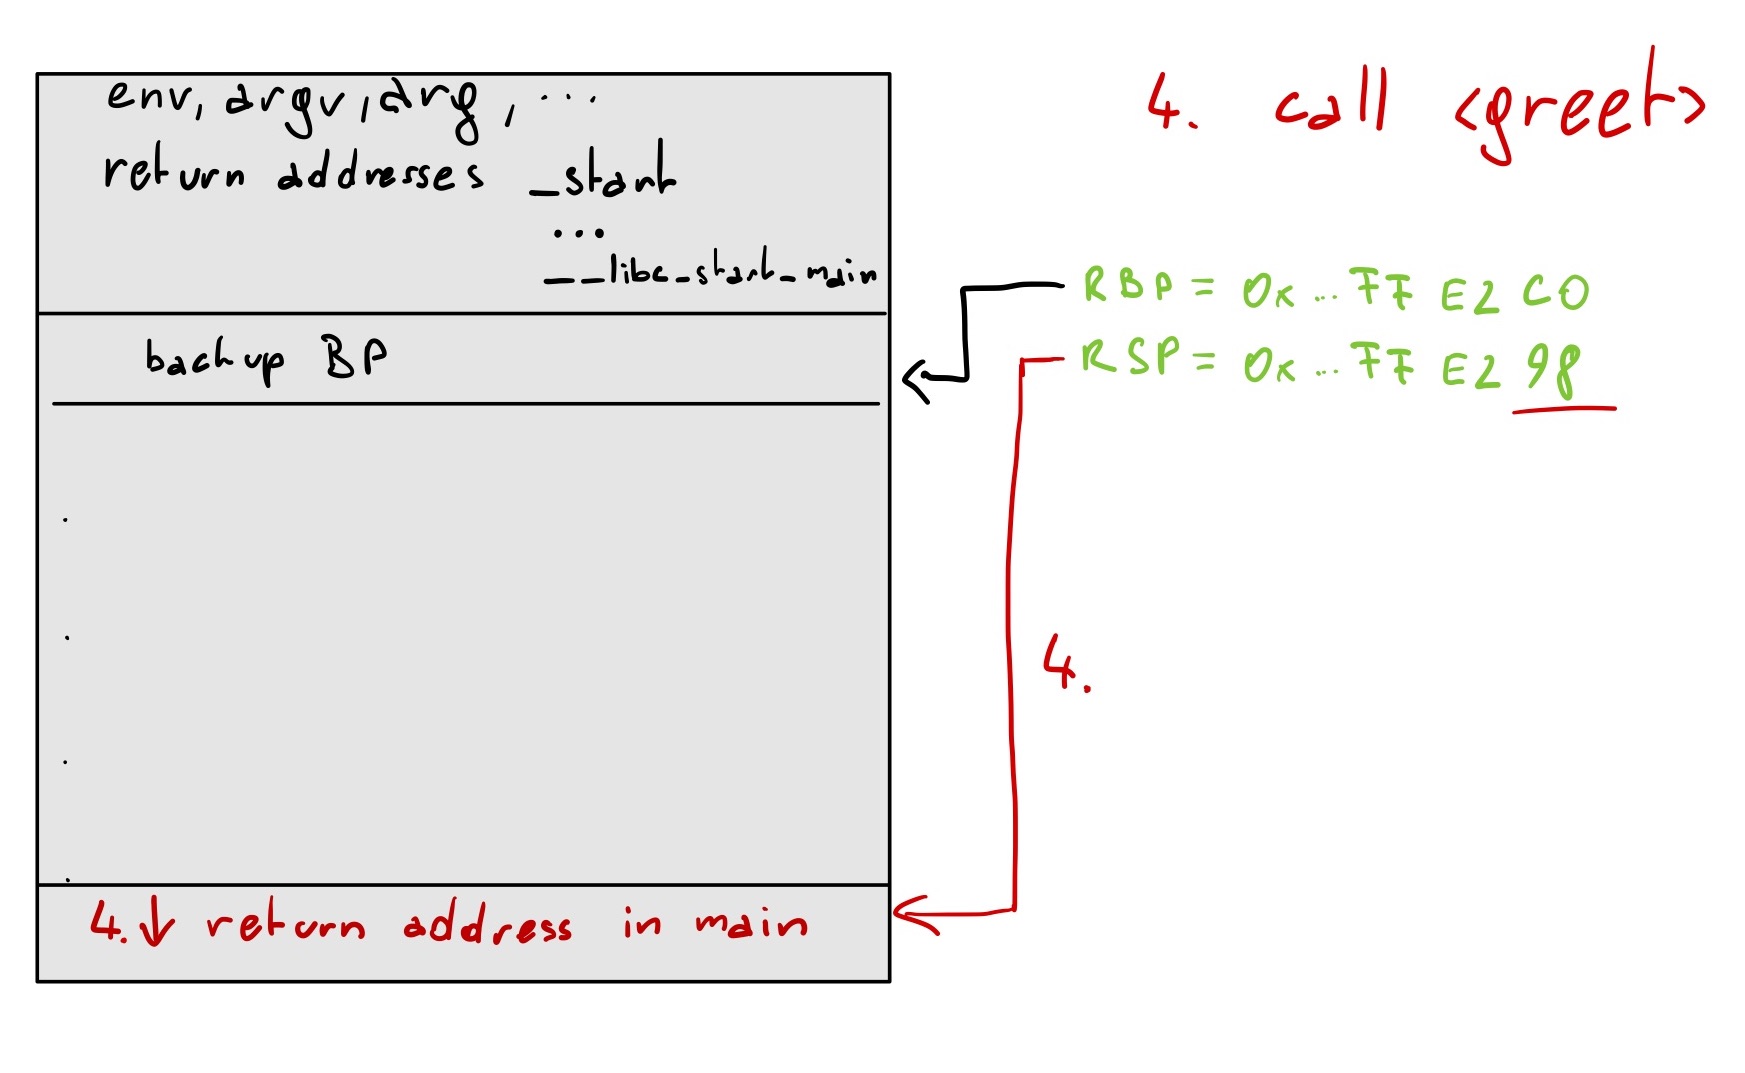 env, argv, arg, ...
return addresses _start
...
__libc_start_main
backup BP
4. ↓ return address in main
4. call <greet>
RBP = 0x...FF E2 C0
RSP = 0x...FF E2 98
4.